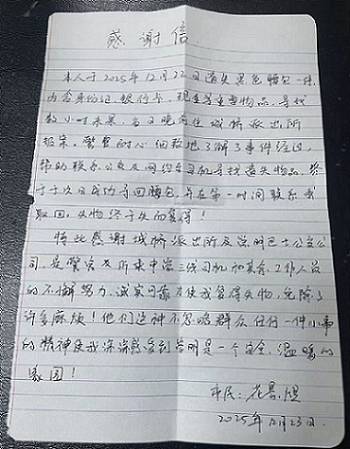 感谢信
本人于2025年12月22日遗失黑色腰包一件,
内含身份证、银行卡、现金等重要物品,寻找
数小时未果,当日晚前往城桥派出所
报案。警官耐心细致地了解了事件经过,
帮助联系公交及网约车司机寻找遗失物品,终
于于次日成功寻回腰包,并在第一时间联系我
取回,失物终于失而复得!
特此感谢城桥派出所及崇明巴士公交公
司,是警官及所乘申崇三线司机和其余工作人员
的不懈努力、诚实可靠才使我复得失物,免除了
许多麻烦!他们这种不忽略群众任何一件小事
的精神使我深深感受到崇明是一个安全、温暖的
家园!
市民:
2025年12月23日